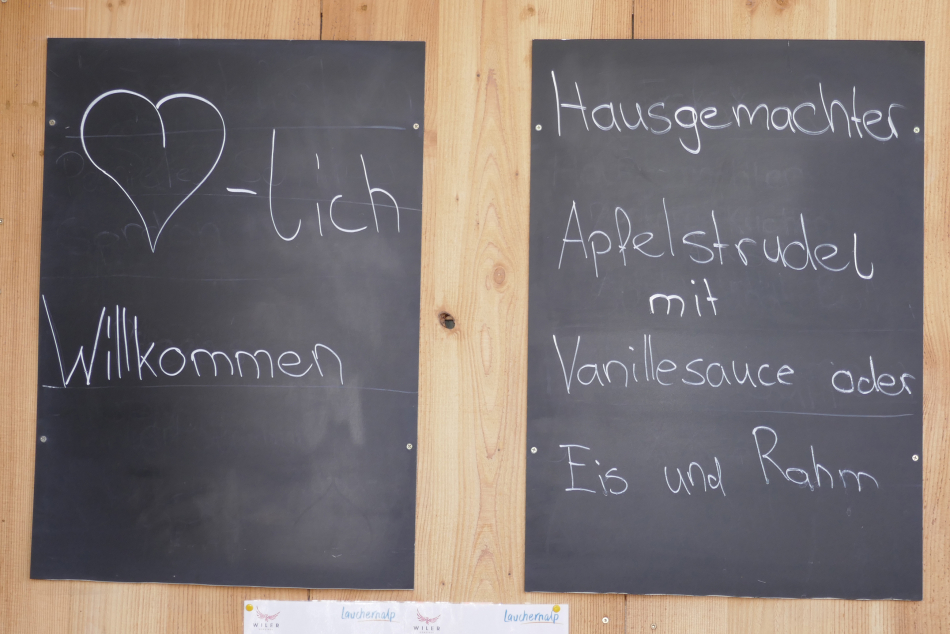 ♡-lich
Willkommen
Hausgemachter
Apfelstrudel
mit
Vanillesauce oder
Eis und Rahm
WILER Lauchernalp WILER Lauchernalp